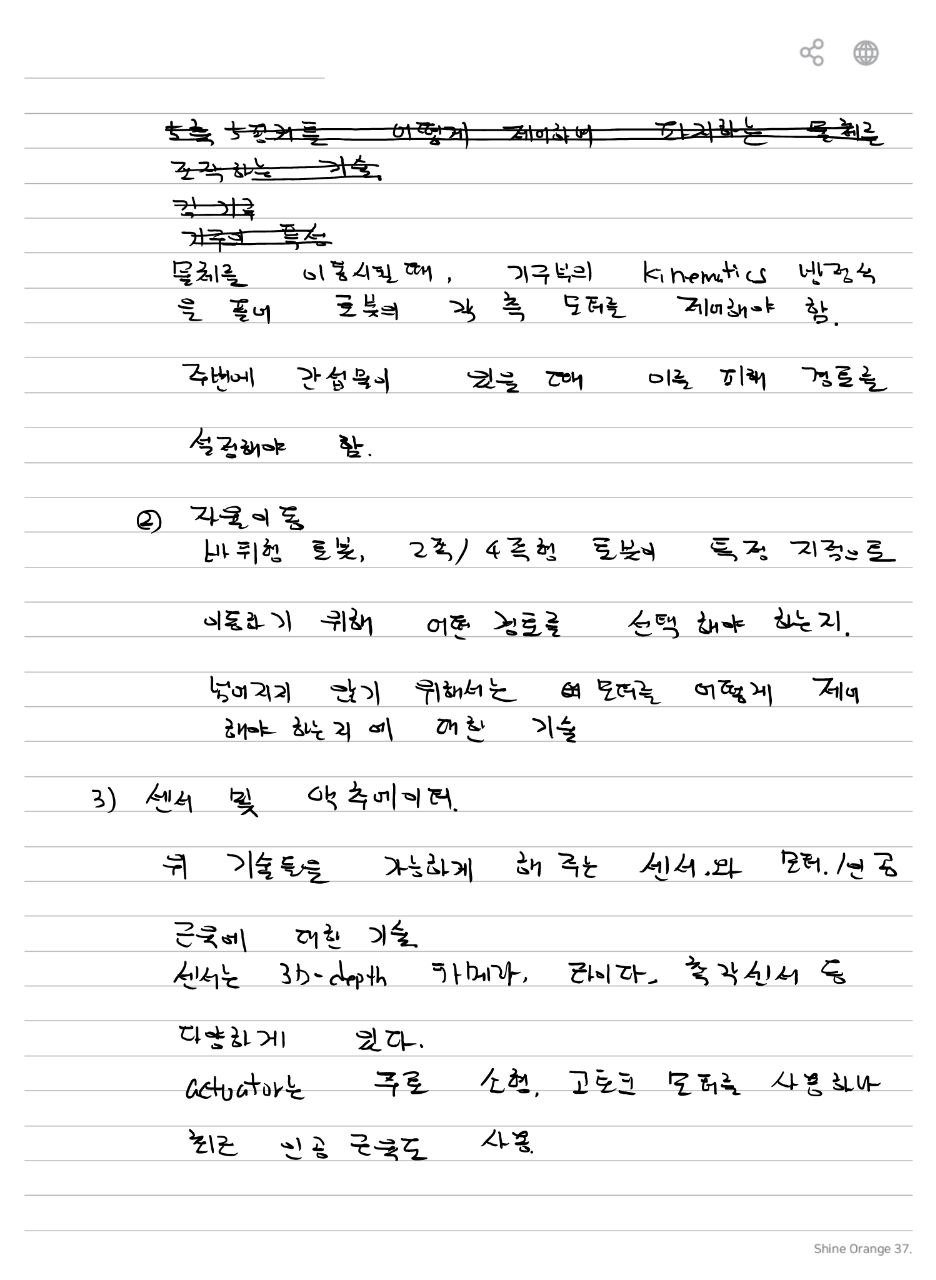 어떻게 제어하며 파지하는 물체를
조작하는 기술.
각 기구
기구의 특성
물체를 이동시킬 때, 기구부의 kinematics 방정식
을 풀어 로봇의 각 축 모터를 제어해야 함.
주변에 간섭물이 있을 때 이를 피해 경로를
설정해야 함.
② 자율이동
바퀴형 로봇, 2족/4족형 로봇이 특정 지점으로
이동하기 위해 어떤 경로를 선택 해야 하는지.
넘어지지 않기 위해서는 모터를 어떻게 제어
해야 하는지 에 대한 기술
3) 센서 및 액추에이터.
위 기술들을 가능하게 해 주는 센서와 모터/인공
근육에 대한 기술
센서는 3D-depth 카메라, 라이다, 촉각센서 등
다양하게 있다.
actuator는 주로 소형, 고토크 모터를 사용하나
최근 인공 근육도 사용.
Shine Orange 37.